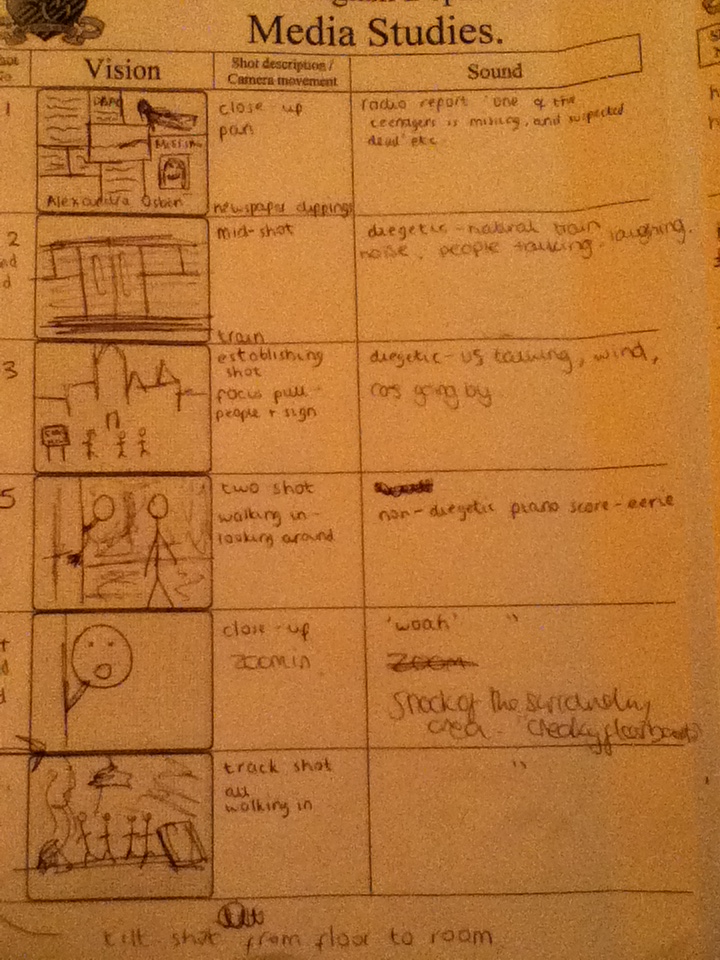 Media Studies.
Vision
Shot description /
Camera movement
Sound
1
close up
pan
newspaper clippings
Alexandra Osben
radio report 'one of the
teenagers is missing, and suspected
dead' etc
2
mid-shot
train
diegetic - natural train
noise, people talking. laughing.
3
establishing
shot
focus pull -
people + sign
diegetic - us talking, wind,
cars going by
5
two shot
walking in -
looking around
non-diegetic piano score - eerie
close-up
zoom in
'woah' "
Zoom
Shock of the surrounding
area - creaky floorboards
track shot
all
walking in
"
tilt shot from floor to room